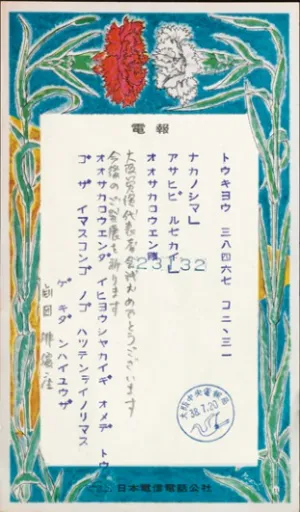 電報
トウキヨウ 三八四六七 コ二、三一
ナカノシマ」
アサヒビルセカイ」
オオサカロウエン
23132
大阪労演代表者会議おめでとうございます
今後のご発展を祈ります
オオサカロウエンダイヒヨウシヤカイギオメデトウ
ゴザイマスコンゴノゴハツテンヲイノリマス
ゲキダンハイユウザ
劇団俳優座
大阪中央電報局
38.7.20
日本電信電話公社